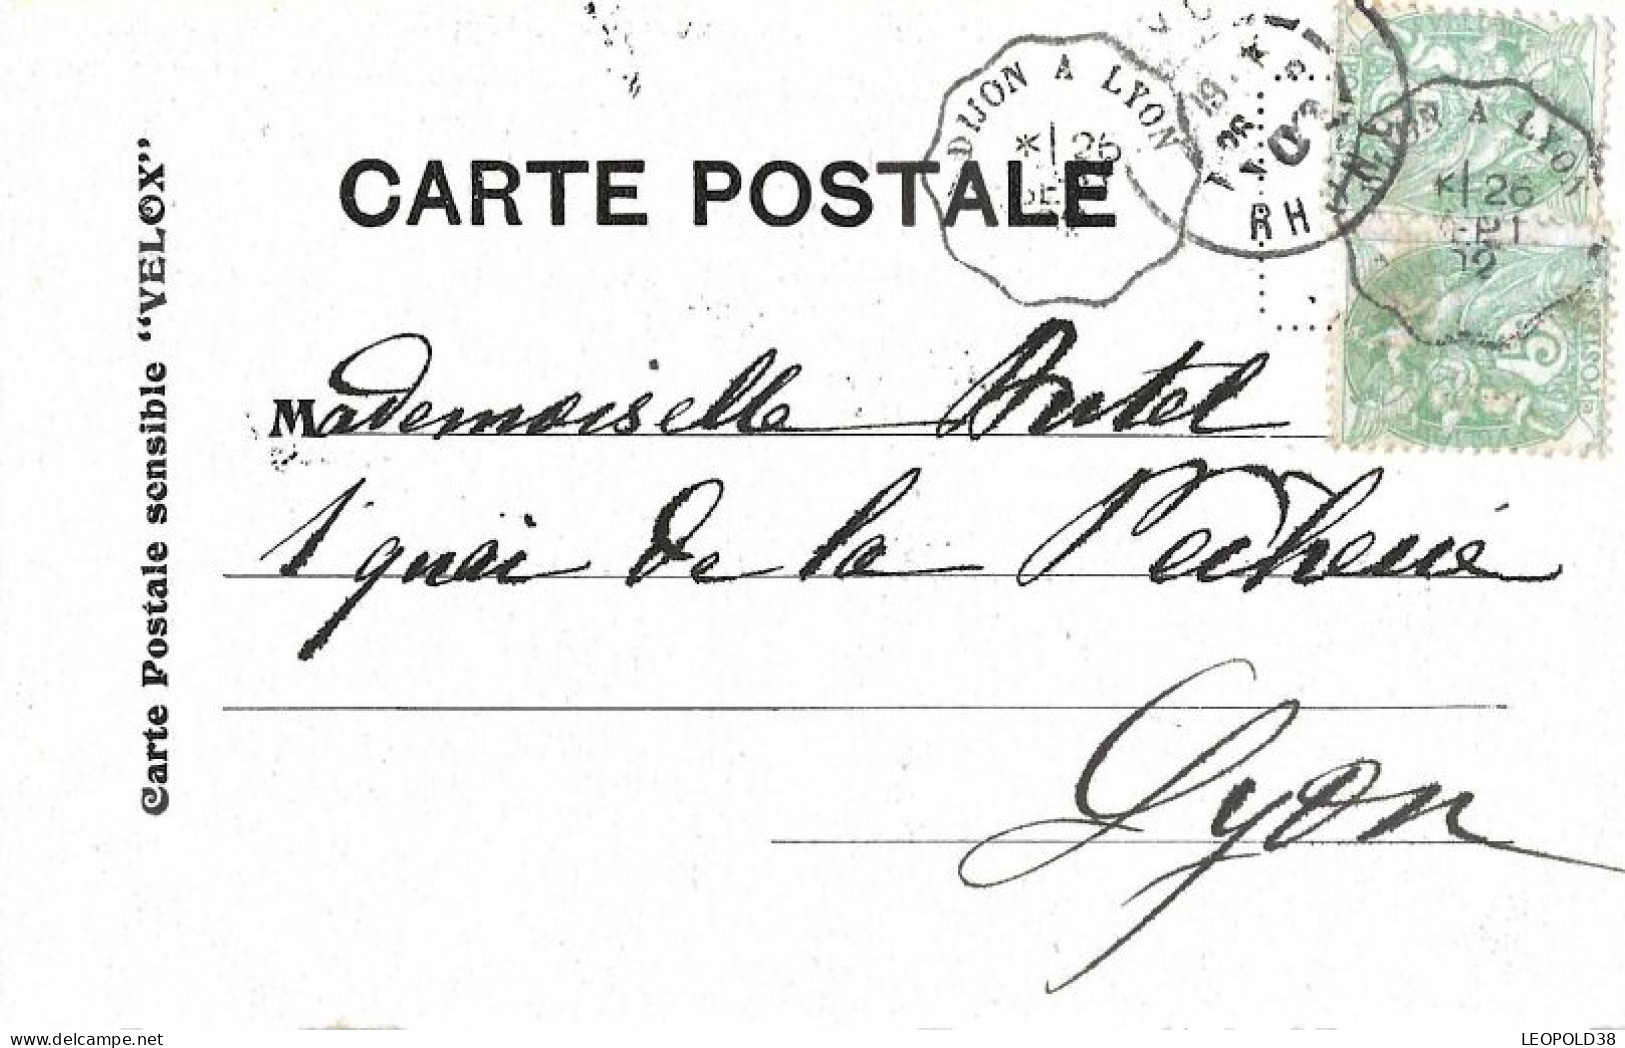 CARTE POSTALE
DIJON A LYON
* 26
A LYON
26
SEPT
02
RH
Carte Postale sensible “VELOX”
Mademoiselle Autel
1 quai de la Pêcherie
Lyon
5
POST
LEOPOLD38